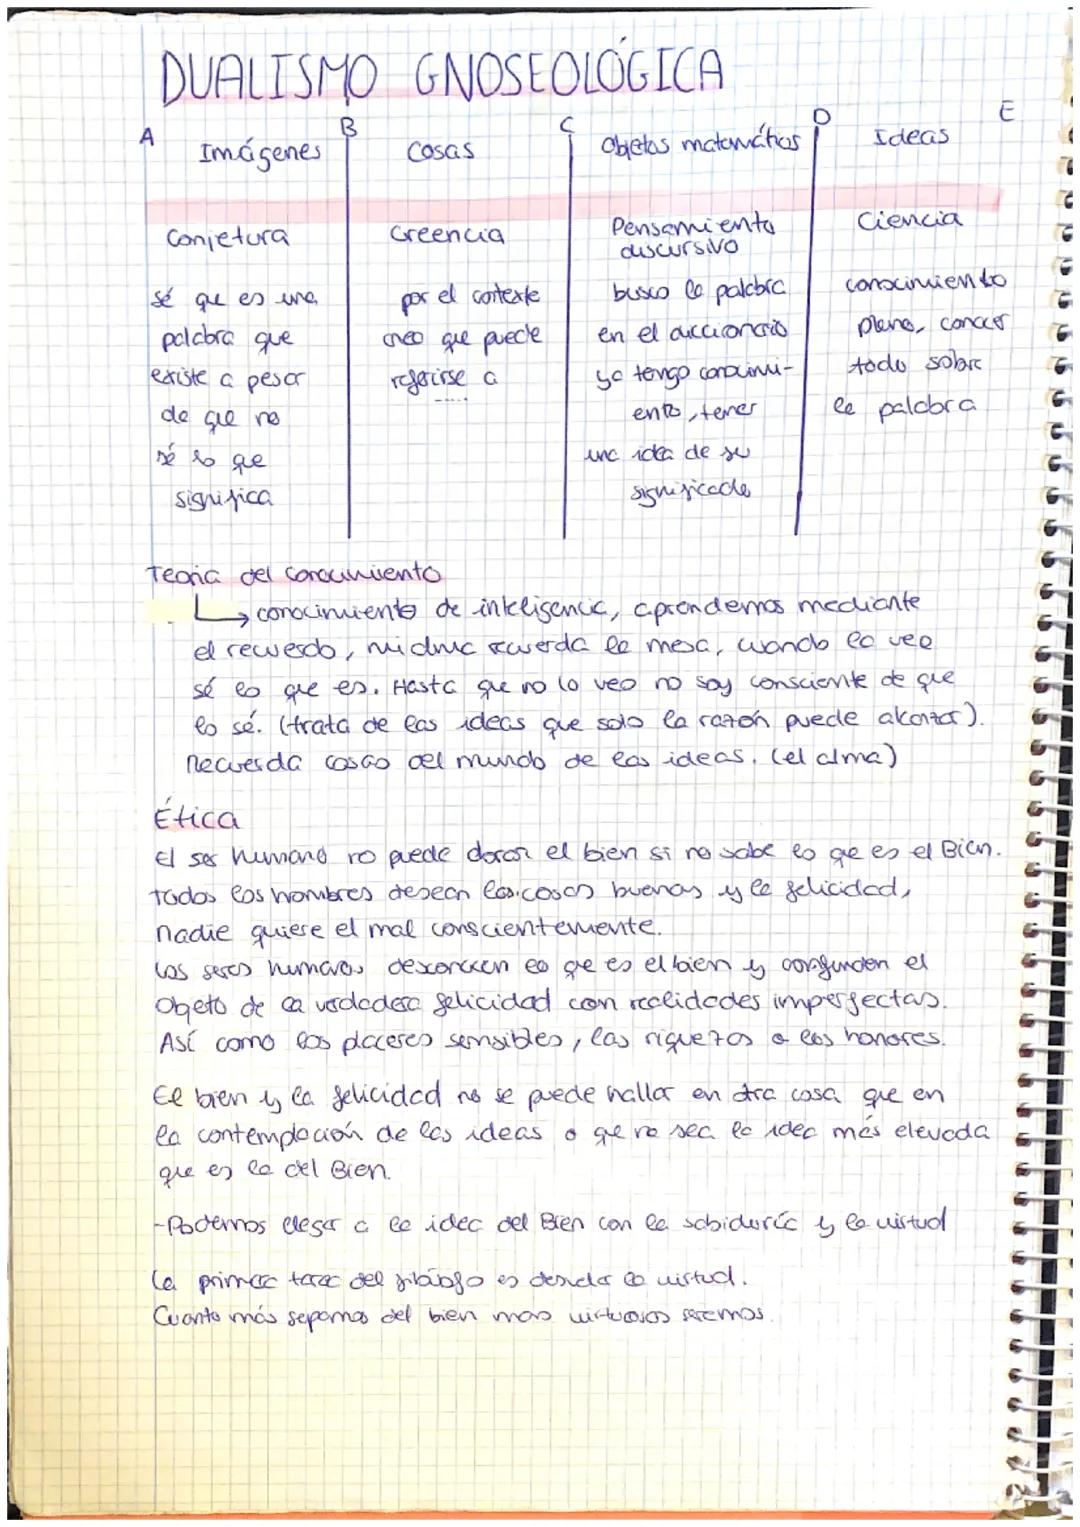 DUALISMO GNOSEOLÓGICA
A B C D E
Imágenes Cosas Objetos matemáticos Ideas
Conjetura Creencia Pensamiento discursivo Ciencia
sé que es una
palabra que
existe a pesar
de que no
sé lo que
significa
por el contexto
creo que puede
referirse a
.....
busco la palabra
en el diccionario
ya tengo conocimi-
ento, tener
una idea de su
significado
conocimiento
pleno, conocer
todo sobre
la palabra
Teoría del conocimiento
↳ conocimiento de inteligencia, aprendemos mediante
el recuerdo, mi alma recuerda la mesa, cuando la veo
sé lo que es. Hasta que no lo veo no soy consciente de que
lo sé. (trata de las ideas que solo la razón puede alcanzar).
Recuerda cosas del mundo de las ideas. (el alma)
Ética
El ser humano no puede el bien si no sabe lo que es el Bien.
Todos los hombres desean las cosas buenas y la felicidad,
nadie quiere el mal conscientemente.
Los seres humanos desconocen lo que es el bien y confunden el
Objeto de la verdadera felicidad con realidades imperfectas.
Así como los placeres sensibles, las riquezas o los honores.
El bien y la felicidad no se puede hallar en otra cosa que en
la contemplación de las ideas o que no sea la idea más elevada
que es la del Bien.
-Podemos llegar a la idea del Bien con la sabiduría y la virtud
La primera tarea del filósofo es la virtud.
Cuanto más sepamos del bien más virtuosos seremos.